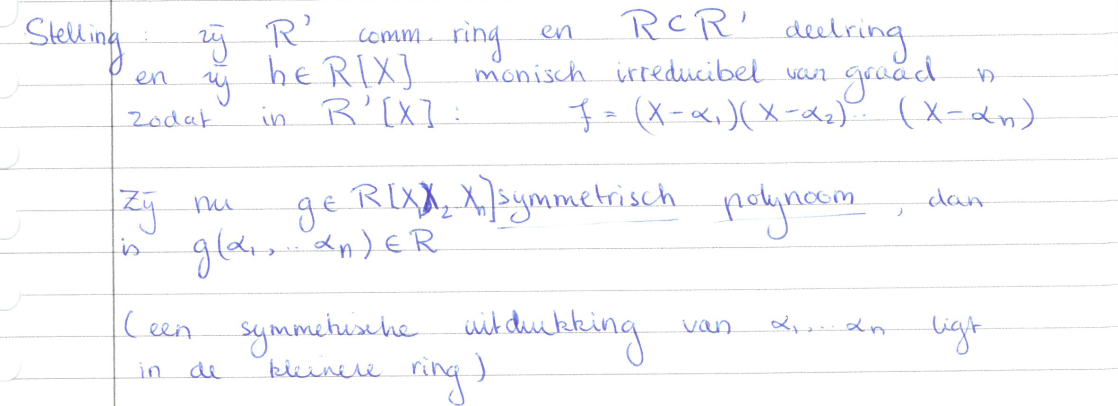 Stelling : zij R' comm. ring en R ⊂ R' deelring
en zij h ∈ R[X] monisch irreducibel van graad n
zodat in R'[X] : f = (X-α₁)(X-α₂)...(X-αn)
Zij nu g ∈ R[X₁X₂ Xn] symmetrisch polynoom, dan
is g(α₁, ... αn) ∈ R
(een symmetrische uitdrukking van α₁... αn ligt
in de kleinere ring)